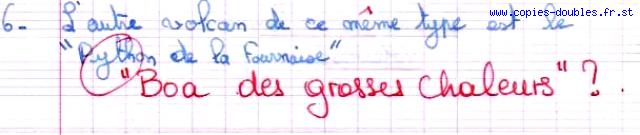 www.copies-doubles.fr.st
6- L'autre volcan de ce même type est le
"Python de la Fournaise"
"Boa des grosses chaleurs" ?.